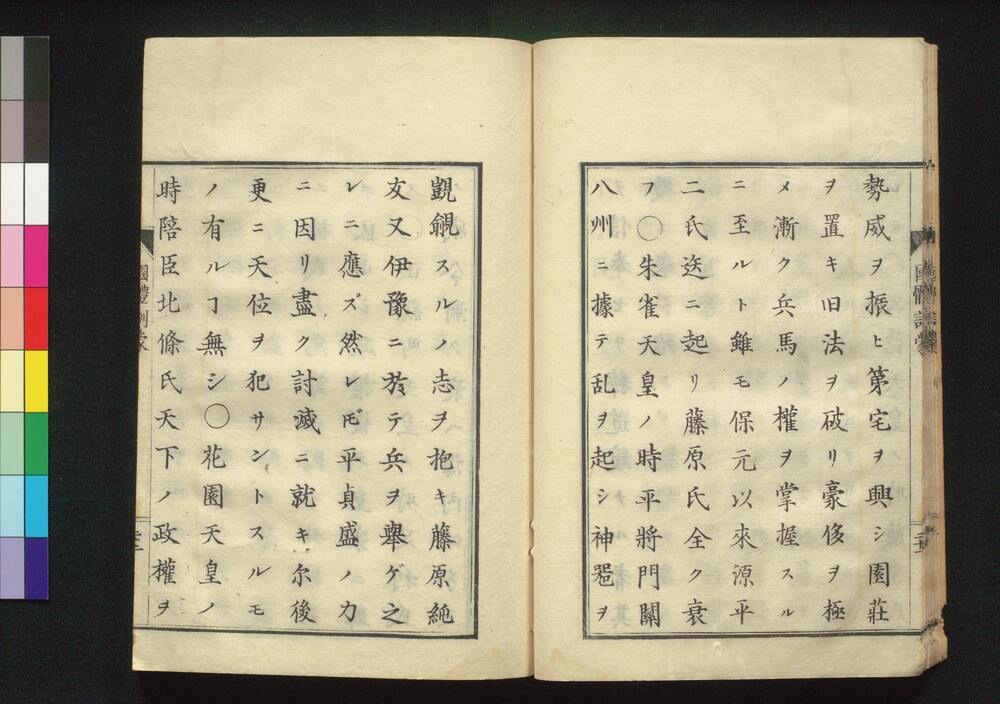 勢威ヲ振ヒ第宅ヲ興シ園莊
ヲ置キ旧法ヲ破リ豪侈ヲ極
メ漸ク兵馬ノ權ヲ掌握スル
ニ至ルト雖モ保元以來源平
二氏迭ニ起リ藤原氏全ク衰
フ〇朱雀天皇ノ時平將門關
八州ニ據テ乱ヲ起シ神噐ヲ
覬覦スルノ志ヲ抱キ藤原純
友又伊豫ニ於テ兵ヲ舉ゲ之
レニ應ズ然レ𪜈平貞盛ノ力
ニ因リ盡ク討滅ニ就キ尓後
更ニ天位ヲ犯サントスルモ
ノ有ルヿ無シ〇花園天皇ノ
時陪臣北條氏天下ノ政權ヲ
國體訓蒙